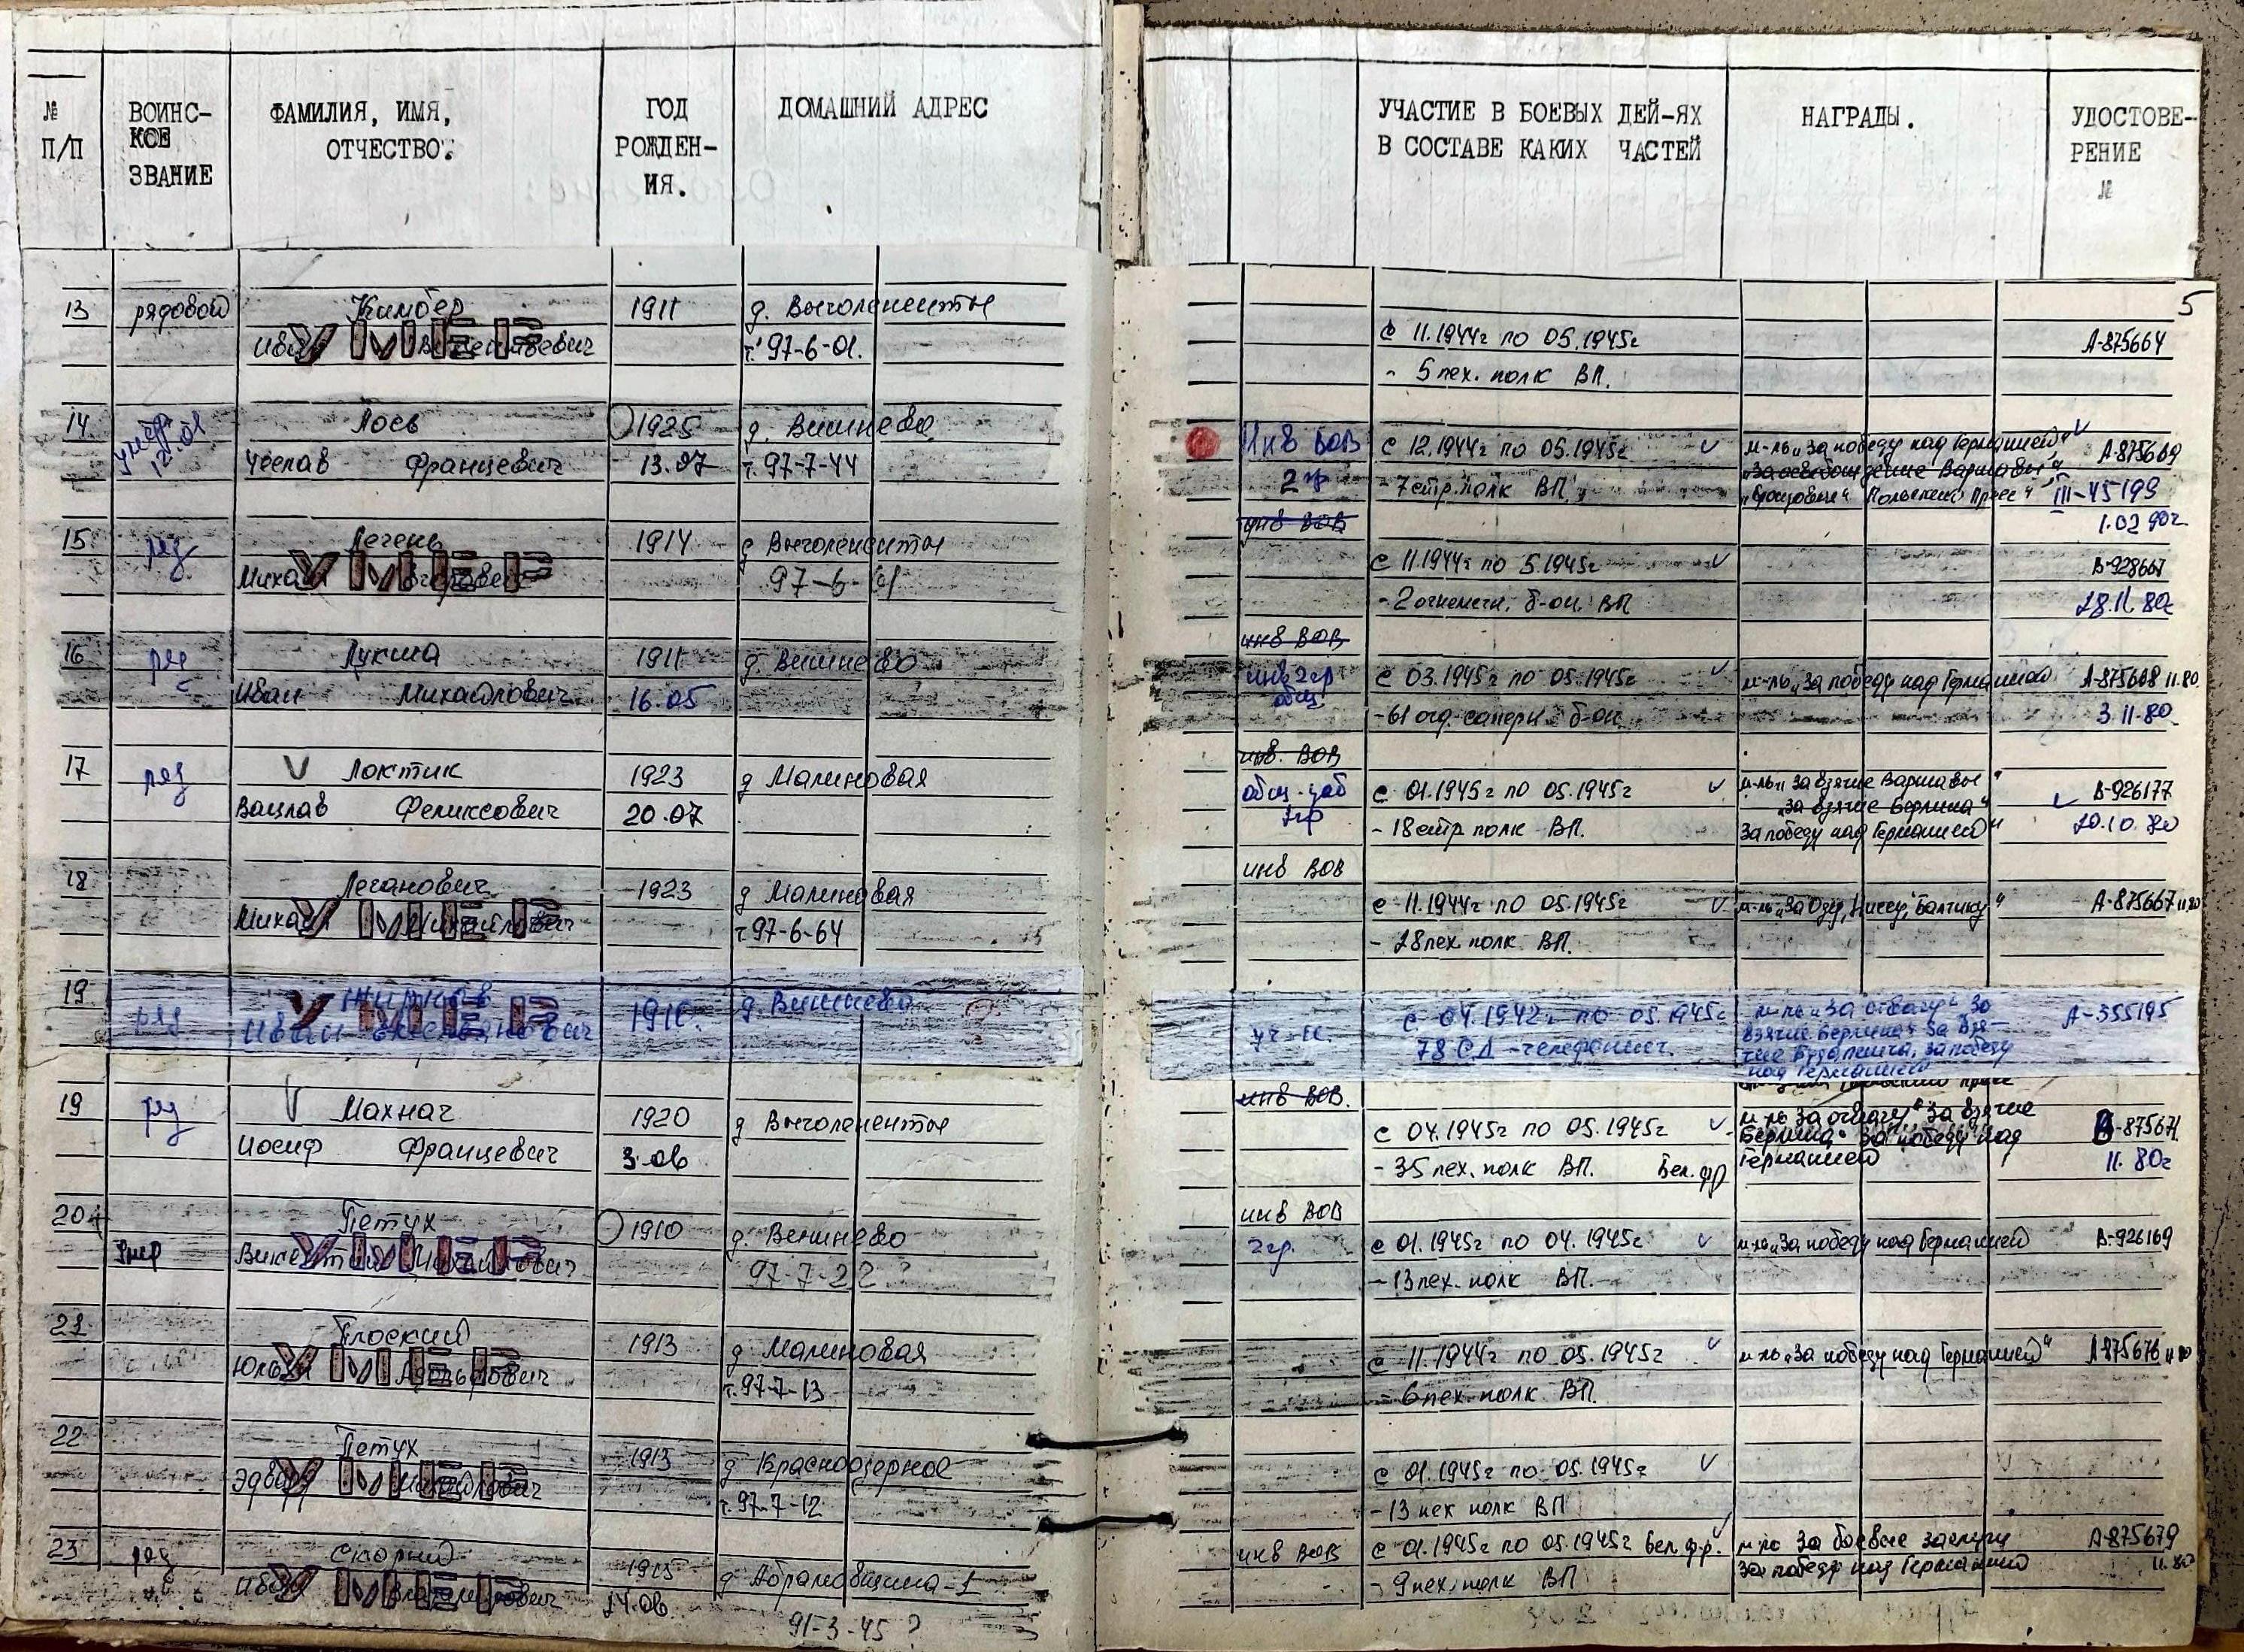 № П/П
ВОИНС-КОЕ ЗВАНИЕ
ФАМИЛИЯ, ИМЯ, ОТЧЕСТВО.
ГОД РОЖДЕН-ИЯ.
ДОМАШНИЙ АДРЕС
УЧАСТИЕ В БОЕВЫХ ДЕЙ-ЯХ
В СОСТАВЕ КАКИХ ЧАСТЕЙ
НАГРАДЫ.
УДОСТОВЕ-РЕНИЕ №
5
13 рядовой Кимбер 1911 д. Выголененты
УМЕР
т. 97-6-01.
с 11.1944г по 05.1945г А-875664
- 5 пех. полк ВП.
14 Лоев 1925 д. Вишнево
умер 12.01
Чеслав Францевич 13.07 т. 97-7-44
Инв ВОВ с 12.1944г по 05.1945г м-ль "За победу над Германией" А-875669
2 гр - 7 стр. полк ВП III-45199
1.02 90г
инв ВОВ
15 ряд Легень 1914 д Выголененты
Михаил УМЕР 97-6-61
с 11.1944г по 5.1945г В-928667
- 2 огнеметн. б-он ВП 28.11.80г
инв ВОВ
16 ряд Лукша 1911 д. Вишнево
Иван Михайлович 16.05
инв 2 гр общ с 03.1945г по 05.1945г м-ль "За победу над Германией А-875608 11.80
- 61 отд. саперн б-он 3.11.80
инв. ВОВ
17 ряд Локтик 1923 д Малиновая
Вацлав Феликсович 20.07
общ. заб с 01.1945г по 05.1945г м-ль "За взятие Варшавы" В-926177
"За взятие Берлина"
- 18 стр полк ВП. За победу над Германией" 20.10.80
инв ВОВ
18 Леганович 1923 д Малиновая
Михаил УМЕР Михайлович т 97-6-64
с 11.1944г по 05.1945г м-ль "За Одру, Ниссу, Балтику" А-875667 11.80
- 28 пех полк ВП.
19 ряд УМЕР 1911. д. Вишнево
Иван
уч-к. с 04.1942г по 05.1945г м-ль "За отвагу" За А-355195
78 СД - телефонист. взятие Берлина" За взя-
тие Будапешта, За победу
над Германией
инв ВОВ.
19 ряд Махнач 1920 д Выголененты
Иосиф Францевич 3.06
с 04.1945г по 05.1945г м-ль За отвагу" За взятие
Берлина" За победу над В-875671
- 35 пех. полк ВП. Бел. фр Германией 11.80г
инв ВОВ
20 Петух 1910 д. Вишнево
Умер УМЕР 97-7-22?
2 гр. с 01.1945г по 04.1945г м-ль "За победу над Германией В-926169
- 13 пех. полк ВП.
21 Плоский 1913 д Малиновая
УМЕР Адольфович т. 97-7-13
с 11.1944г по 05.1945г м-ль "За победу над Германией" А-875676 11.80
- 6 пех. полк ВП.
22 Петух 1913 д Красноозерное
Эдвард УМЕР Михайлович т. 97-7-12
с 01.1945г по 05.1945г
- 13 пех полк ВП
23 ряд Скорый 1915 д Абрамовщина-1
Иван УМЕР Владимирович 24.06
91-3-45?
инв ВОВ с 01.1945г по 05.1945г Бел. фр. м-ль За боевые заслуги А-875679
- 9 пех. полк ВП За победу над Германией 11.80